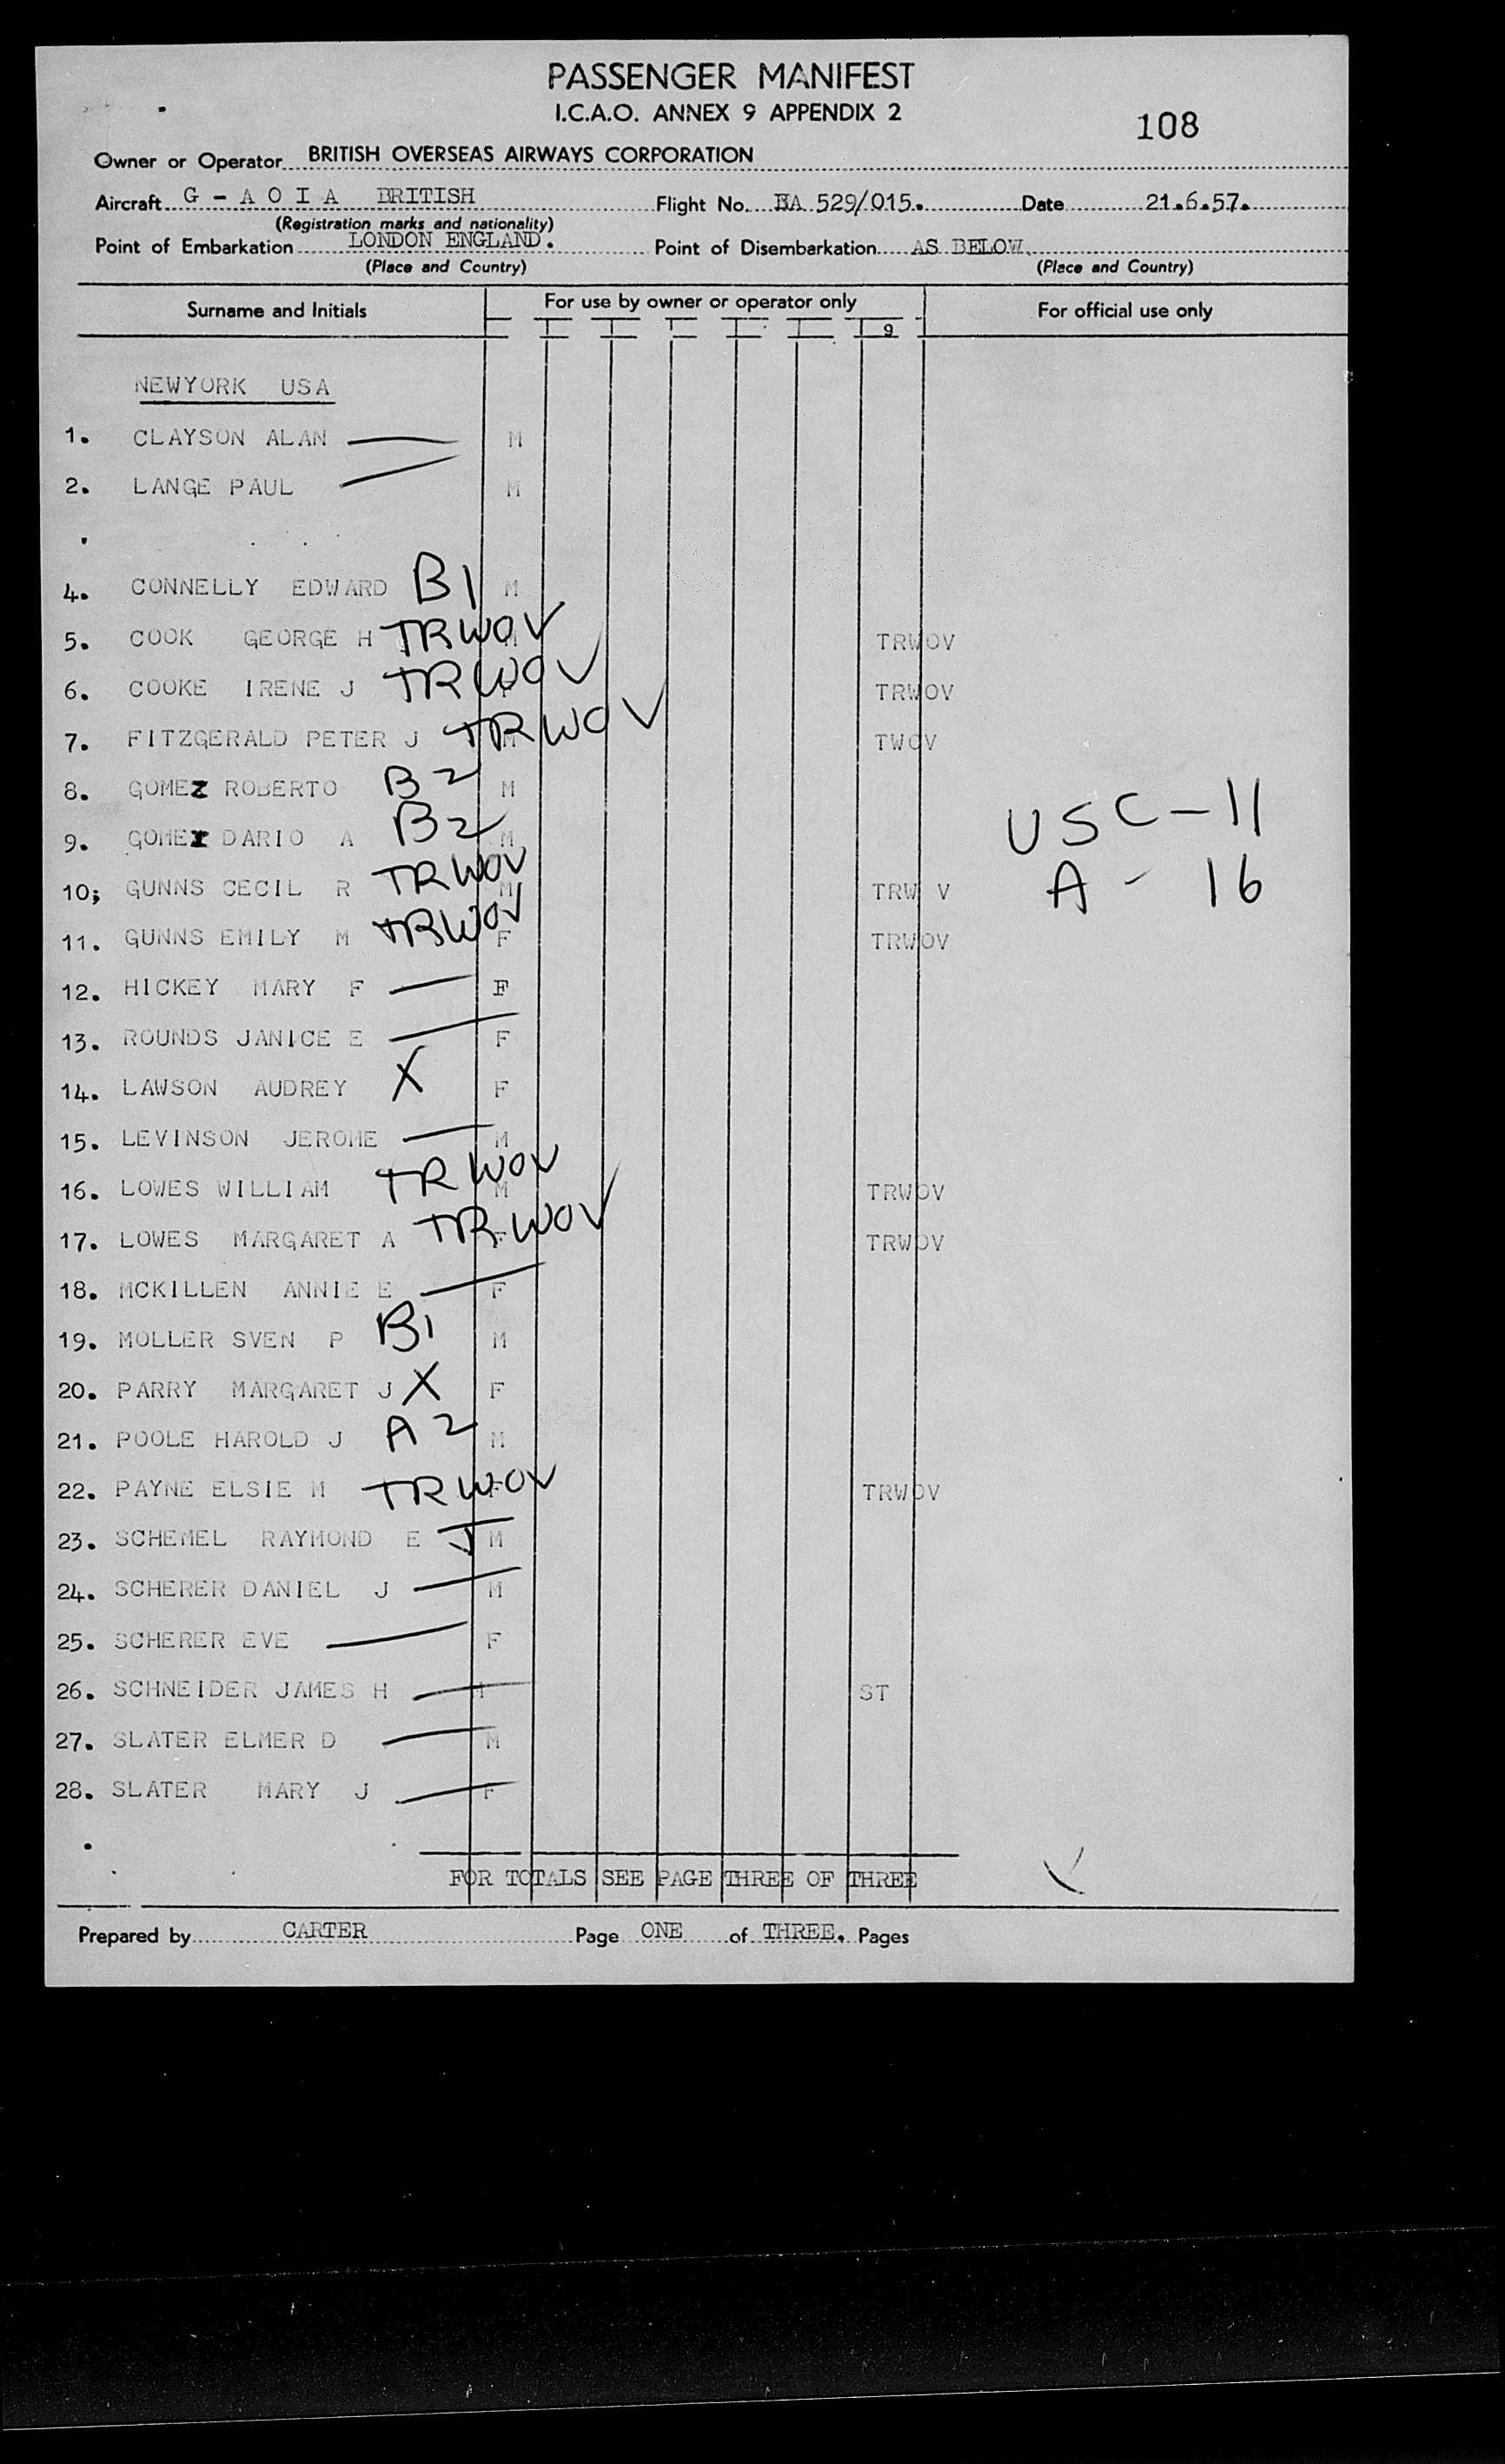 PASSENGER MANIFEST
I.C.A.O. ANNEX 9 APPENDIX 2
108
Owner or Operator BRITISH OVERSEAS AIRWAYS CORPORATION
Aircraft G - A O I A BRITISH Flight No. BA 529/015. Date 21.6.57.
(Registration marks and nationality)
Point of Embarkation LONDON ENGLAND. Point of Disembarkation AS BELOW.
(Place and Country) (Place and Country)
Surname and Initials For use by owner or operator only For official use only
9
NEWYORK USA
1. CLAYSON ALAN M
2. LANGE PAUL M
4. CONNELLY EDWARD B1 M
5. COOK GEORGE H TRWOV M TRWOV
6. COOKE IRENE J TRWOV TRWOV
7. FITZGERALD PETER J TRWOV M TWOV
8. GOMEZ ROBERTO B2 M
USC-11
9. GOMEZ DARIO A B2 M
10; GUNNS CECIL R TRWOV M TRW V A - 16
11. GUNNS EMILY M TRWOV F TRWOV
12. HICKEY MARY F F
13. ROUNDS JANICE E F
14. LAWSON AUDREY X F
15. LEVINSON JEROME M
16. LOWES WILLIAM TRWOV M TRWOV
17. LOWES MARGARET A TRWOV F TRWOV
18. MCKILLEN ANNIE E F
19. MOLLER SVEN P B1 M
20. PARRY MARGARET J X F
21. POOLE HAROLD J A2 M
22. PAYNE ELSIE M TRWOV F TRWOV
23. SCHEMEL RAYMOND E M
24. SCHERER DANIEL J M
25. SCHERER EVE F
26. SCHNEIDER JAMES H M ST
27. SLATER ELMER D M
28. SLATER MARY J F
FOR TOTALS SEE PAGE THREE OF THREE
Prepared by CARTER Page ONE of THREE. Pages